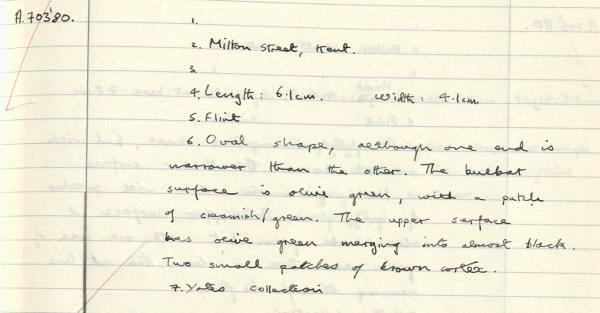 A.703'80.
1.
2. Milton Street, Kent.
3
4. Length: 6.1cm. Width: 4.1cm
5. Flint
6. Oval shape, although one end is
narrower than the other. The bulbar
surface is olive green, with a patch
of creamish/green. The upper surface
has olive green merging into almost black.
Two small patches of brown cortex.
7. Yates collection